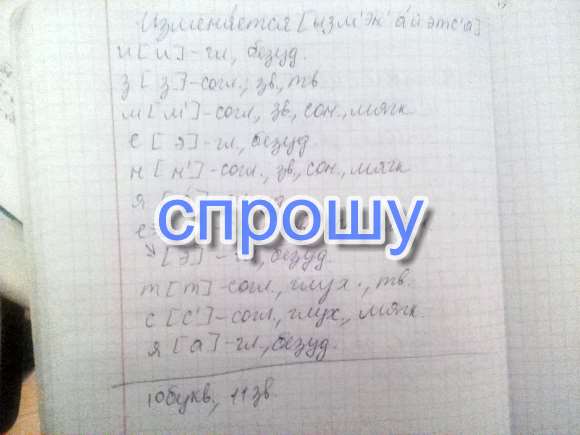 Изменяется [ызм'эн'а́йэтс'а]
и [и]-гл, безуд.
з [з]-согл., зв., тв
м [м']-согл, зв, сон., мягк
е [э]-гл, безуд.
н [н']-согл., зв, сон., мягк
я
спрошу
е
[э] - безуд.
т [т]-согл., глух., тв.
с [с']-согл., глух., мягк
я [а]-гл., безуд.
10букв, 11зв